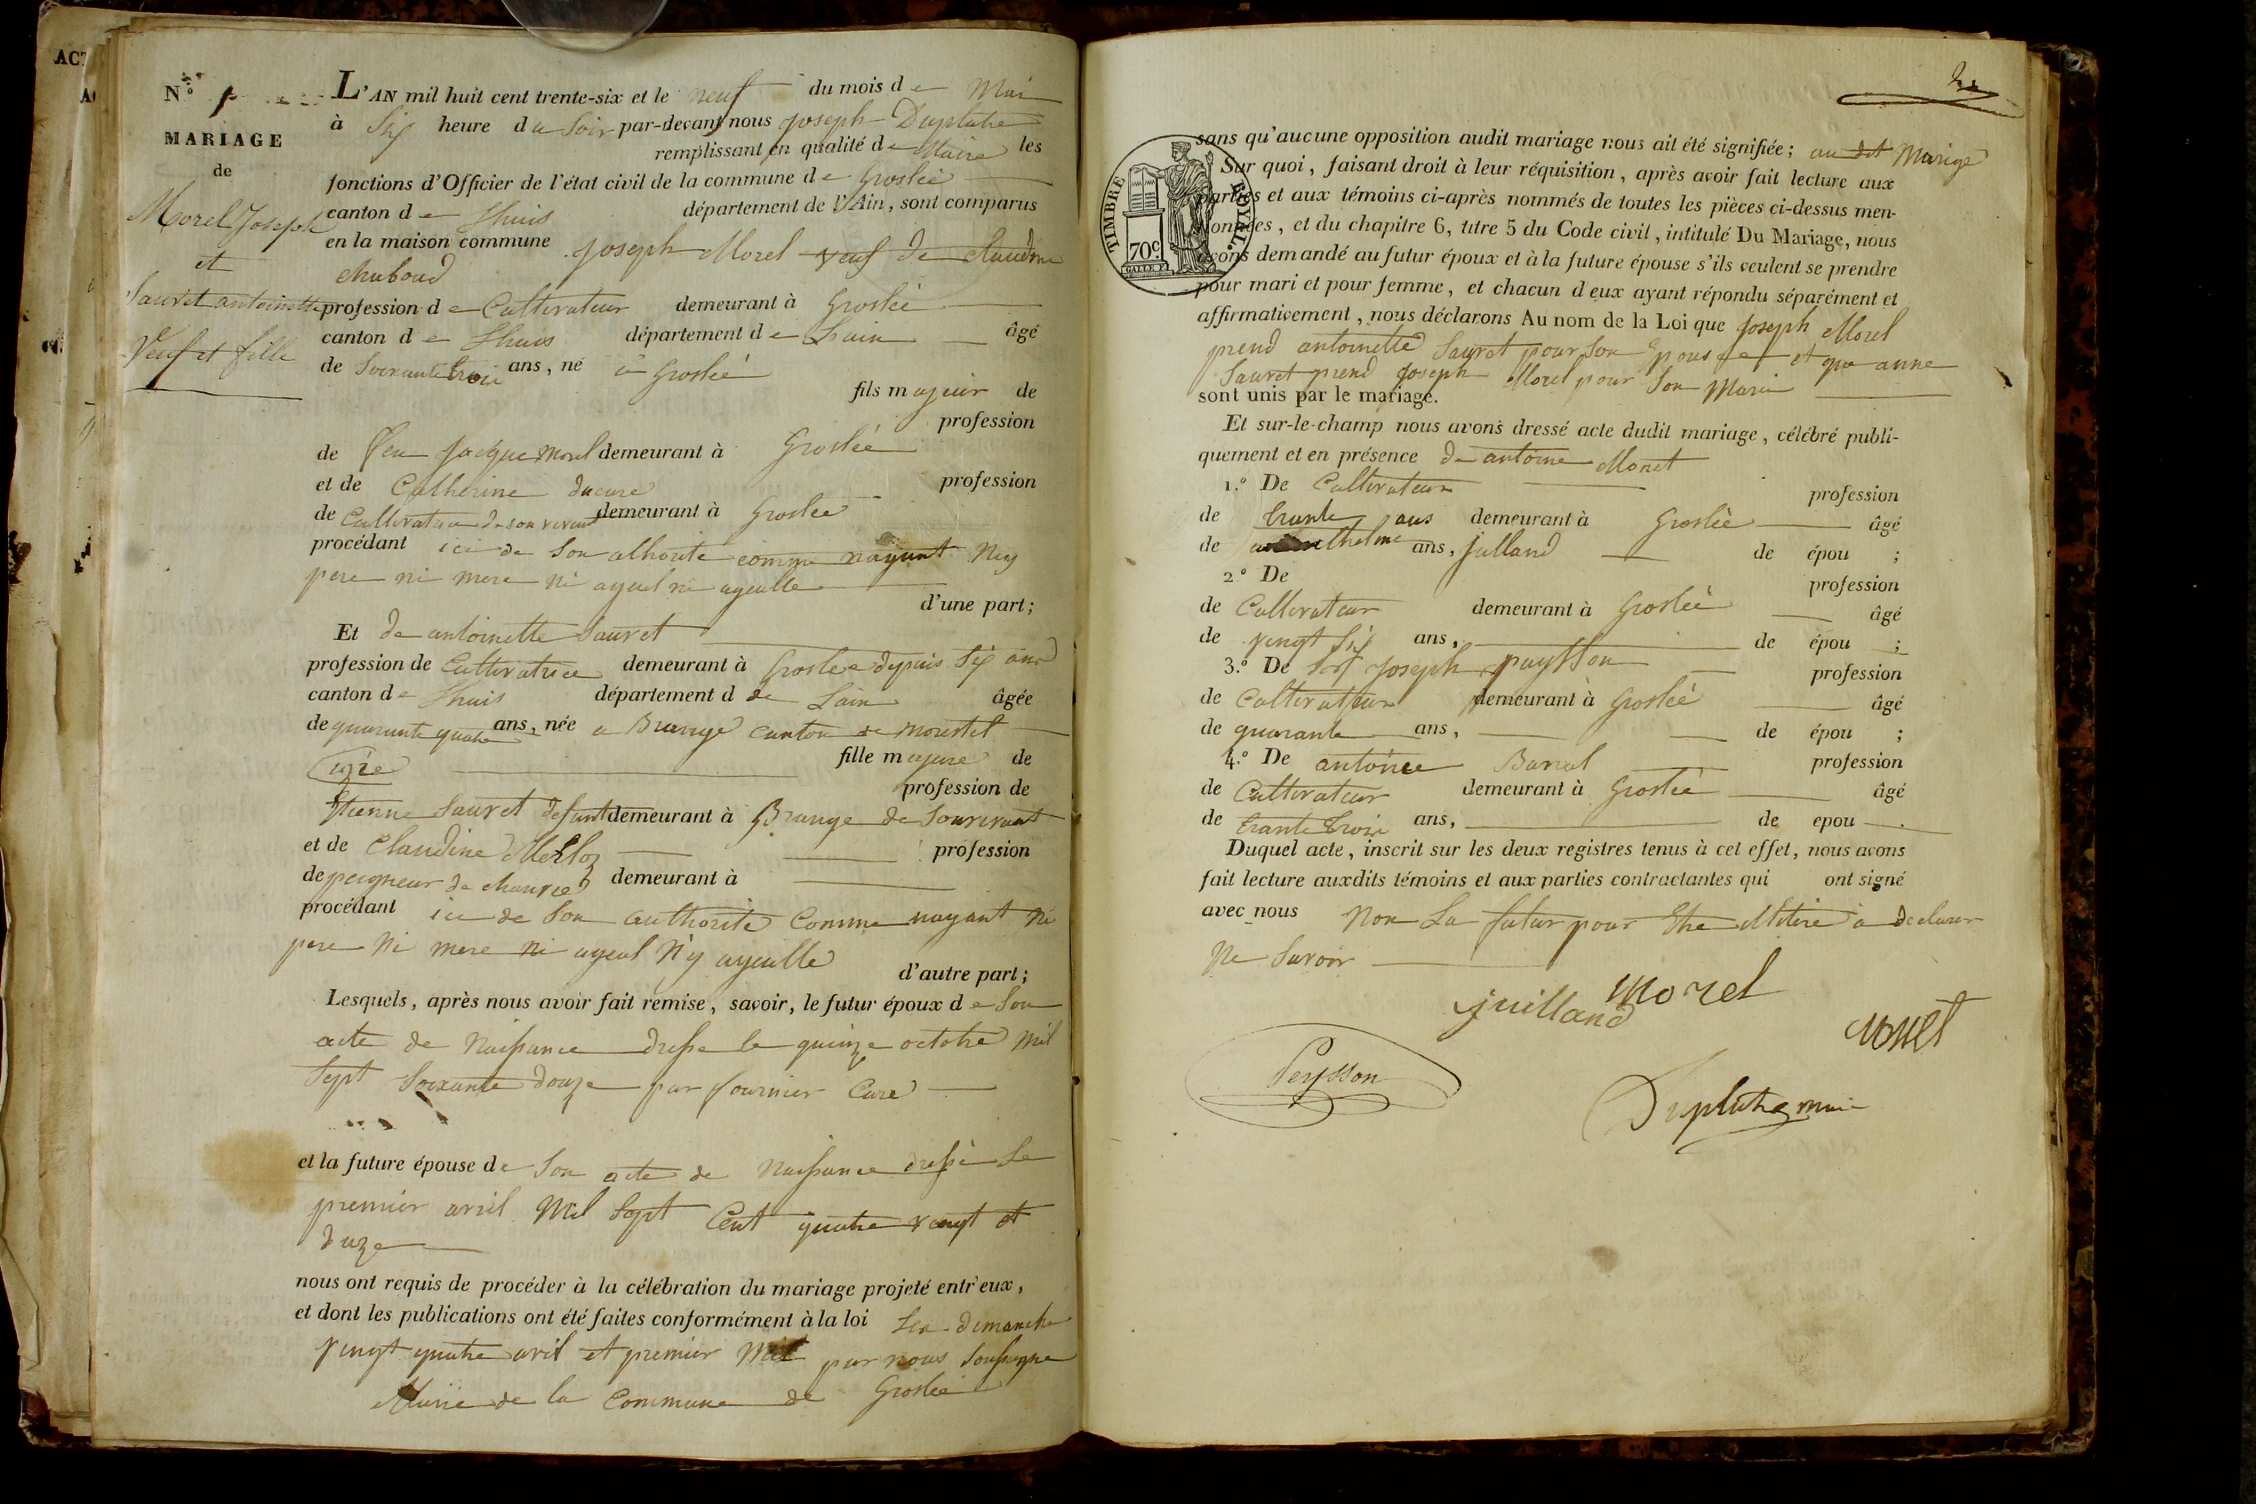 ACT
A
N.º 1
MARIAGE
de
Morel Joseph
et
Sauret antoinette
Veuf et fille
L'AN mil huit cent trente-six et le neuf du mois de Mai
à Six heure du Soir par-devant nous Joseph Duplatre
remplissant en qualité de Maire les
fonctions d'Officier de l'état civil de la commune de Groslée
canton de Lhuis département de l'Ain, sont comparus
en la maison commune Joseph Morel veuf de Claudine
chaboud
profession de Cultivateur demeurant à Groslée
canton de Lhuis département de Lain âgé
de Soixante troii ans, né à Groslée
fils majeur de
profession
de feu Jacque Morel demeurant à Groslée
et de Catherine ducure profession
de Cultivateur de son vivant demeurant à Groslee
procédant ici de Son athorite comme nayant Ny
pere ni mere ni ayeul ni ayeulle
d'une part;
Et de antoinette Sauret
profession de Cultivatrice demeurant à Groslee depuis Six ans
canton de Lhuis département d de Lain âgée
de quarante quatre ans, née a Brange canton de morestel
isere fille majeure de
profession de
Etienne Sauret defunt demeurant à Brange de Sonvivant
et de Claudine Merloz profession
de peigneur de chanvre demeurant à
procédant ici de Son authorité Comme nayant Ni
pere Ni mere ni ayeul N'y ayeulle
d'autre part;
Lesquels, après nous avoir fait remise, savoir, le futur époux de Son
acte de Naissance dresse le quinze octobre Mil
Sept Soixante douze par fournier Curé
et la future épouse de Son acte de Naissance dressé Le
premier avril Mil Sept Cent quatre vingt et
duze
nous ont requis de procéder à la célébration du mariage projeté entr'eux,
et dont les publications ont été faites conformément à la loi Les dimanche
vingt quatre avril et premier Mai par nous Soussigne
Maire de la Commune de Groslée
sans qu'aucune opposition audit mariage nous ait été signifiée; au dit Mariage
Sur quoi, faisant droit à leur réquisition, après avoir fait lecture aux
parties et aux témoins ci-après nommés de toutes les pièces ci-dessus men-
tionnées, et du chapitre 6, titre 5 du Code civil, intitulé Du Mariage, nous
avons demandé au futur époux et à la future épouse s'ils veulent se prendre
pour mari et pour femme, et chacun d'eux ayant répondu séparément et
affirmativement, nous déclarons Au nom de la Loi que Joseph Morel
prend antoinette Sauret pour Son Epouse et que anne
Sauret prend Joseph Morel pour Son Mari
sont unis par le mariage.
TIMBRE ROYAL
70 c.
Et sur-le-champ nous avons dressé acte dudit mariage, célébré publi-
quement et en présence de antoine Monet
1.º De Cultivateur profession
de trente ans demeurant à Groslée âgé
de anthelme ans, julland de épou ;
2.º De profession
de Cultivateur demeurant à Groslée âgé
de vingt Six ans, de épou ;
3.º De Joseph paysson profession
de Cultivateur demeurant à Groslée âgé
de quarante ans, de épou ;
4.º De antoine Barral profession
de Cultivateur demeurant à Groslée âgé
de trante troix ans, de epou .
Duquel acte, inscrit sur les deux registres tenus à cet effet, nous avons
fait lecture auxdits témoins et aux parties contractantes qui ont signé
avec nous Non La futur pour Etre Illitiré a declarer
Ne Savoir
Morel
juilland
monet
Peysson
Duplatre maire